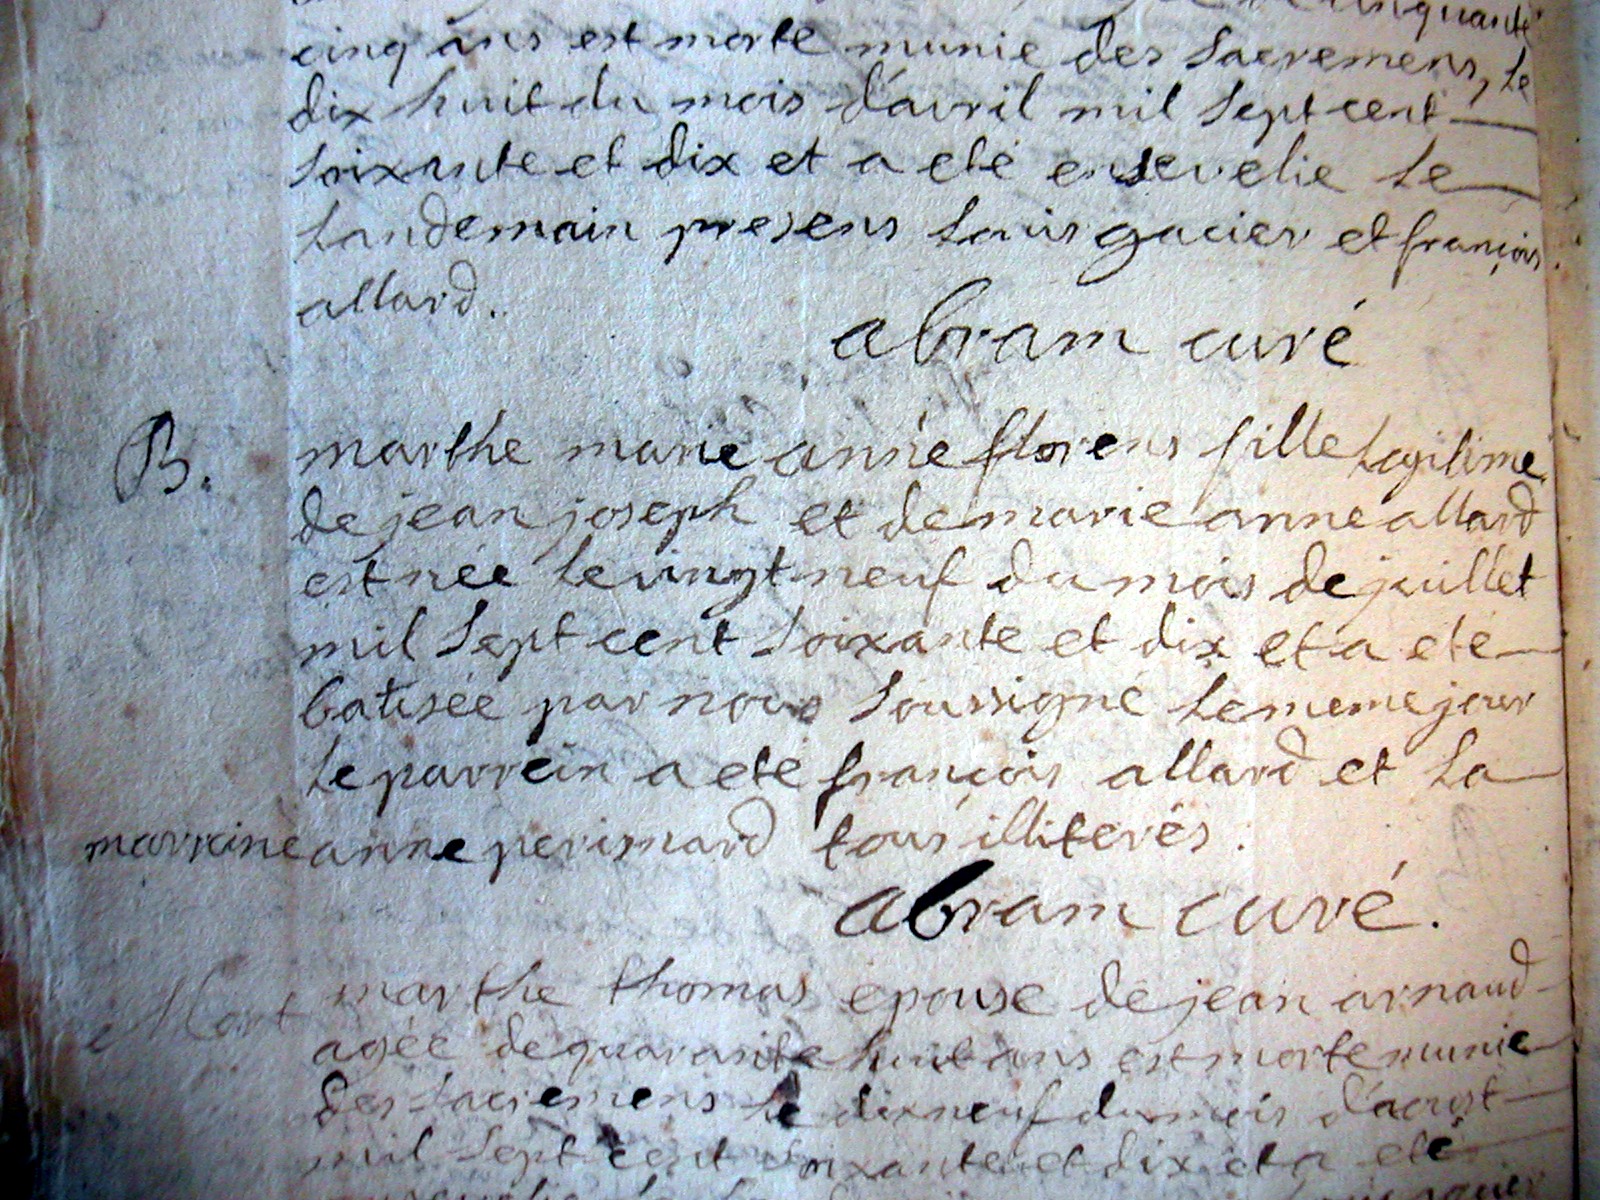 cinquante
cinq ans est morte munie des sacremens, le
dix huit du mois d'avril mil sept cent
soixante et dix et a eté ensevelie le
landemain presens louis gacier et françois
allard.
abram curé
B. marthe marie anne florens fille legitime
de jean joseph et de marie anne allard
est née le vingt neuf du mois de juillet
mil sept cent soixante et dix et a eté
batisée par nous soussigné le meme jour
le parrein a eté françois allard et la
marreine anne perimard tous illiterés.
abram curé.
Mort marthe thomas epouse de jean arnaud
agée de quarante huit ans est morte munie
des sacremens le dix neuf du mois d'aoust
mil sept cent soixante et dix et a eté